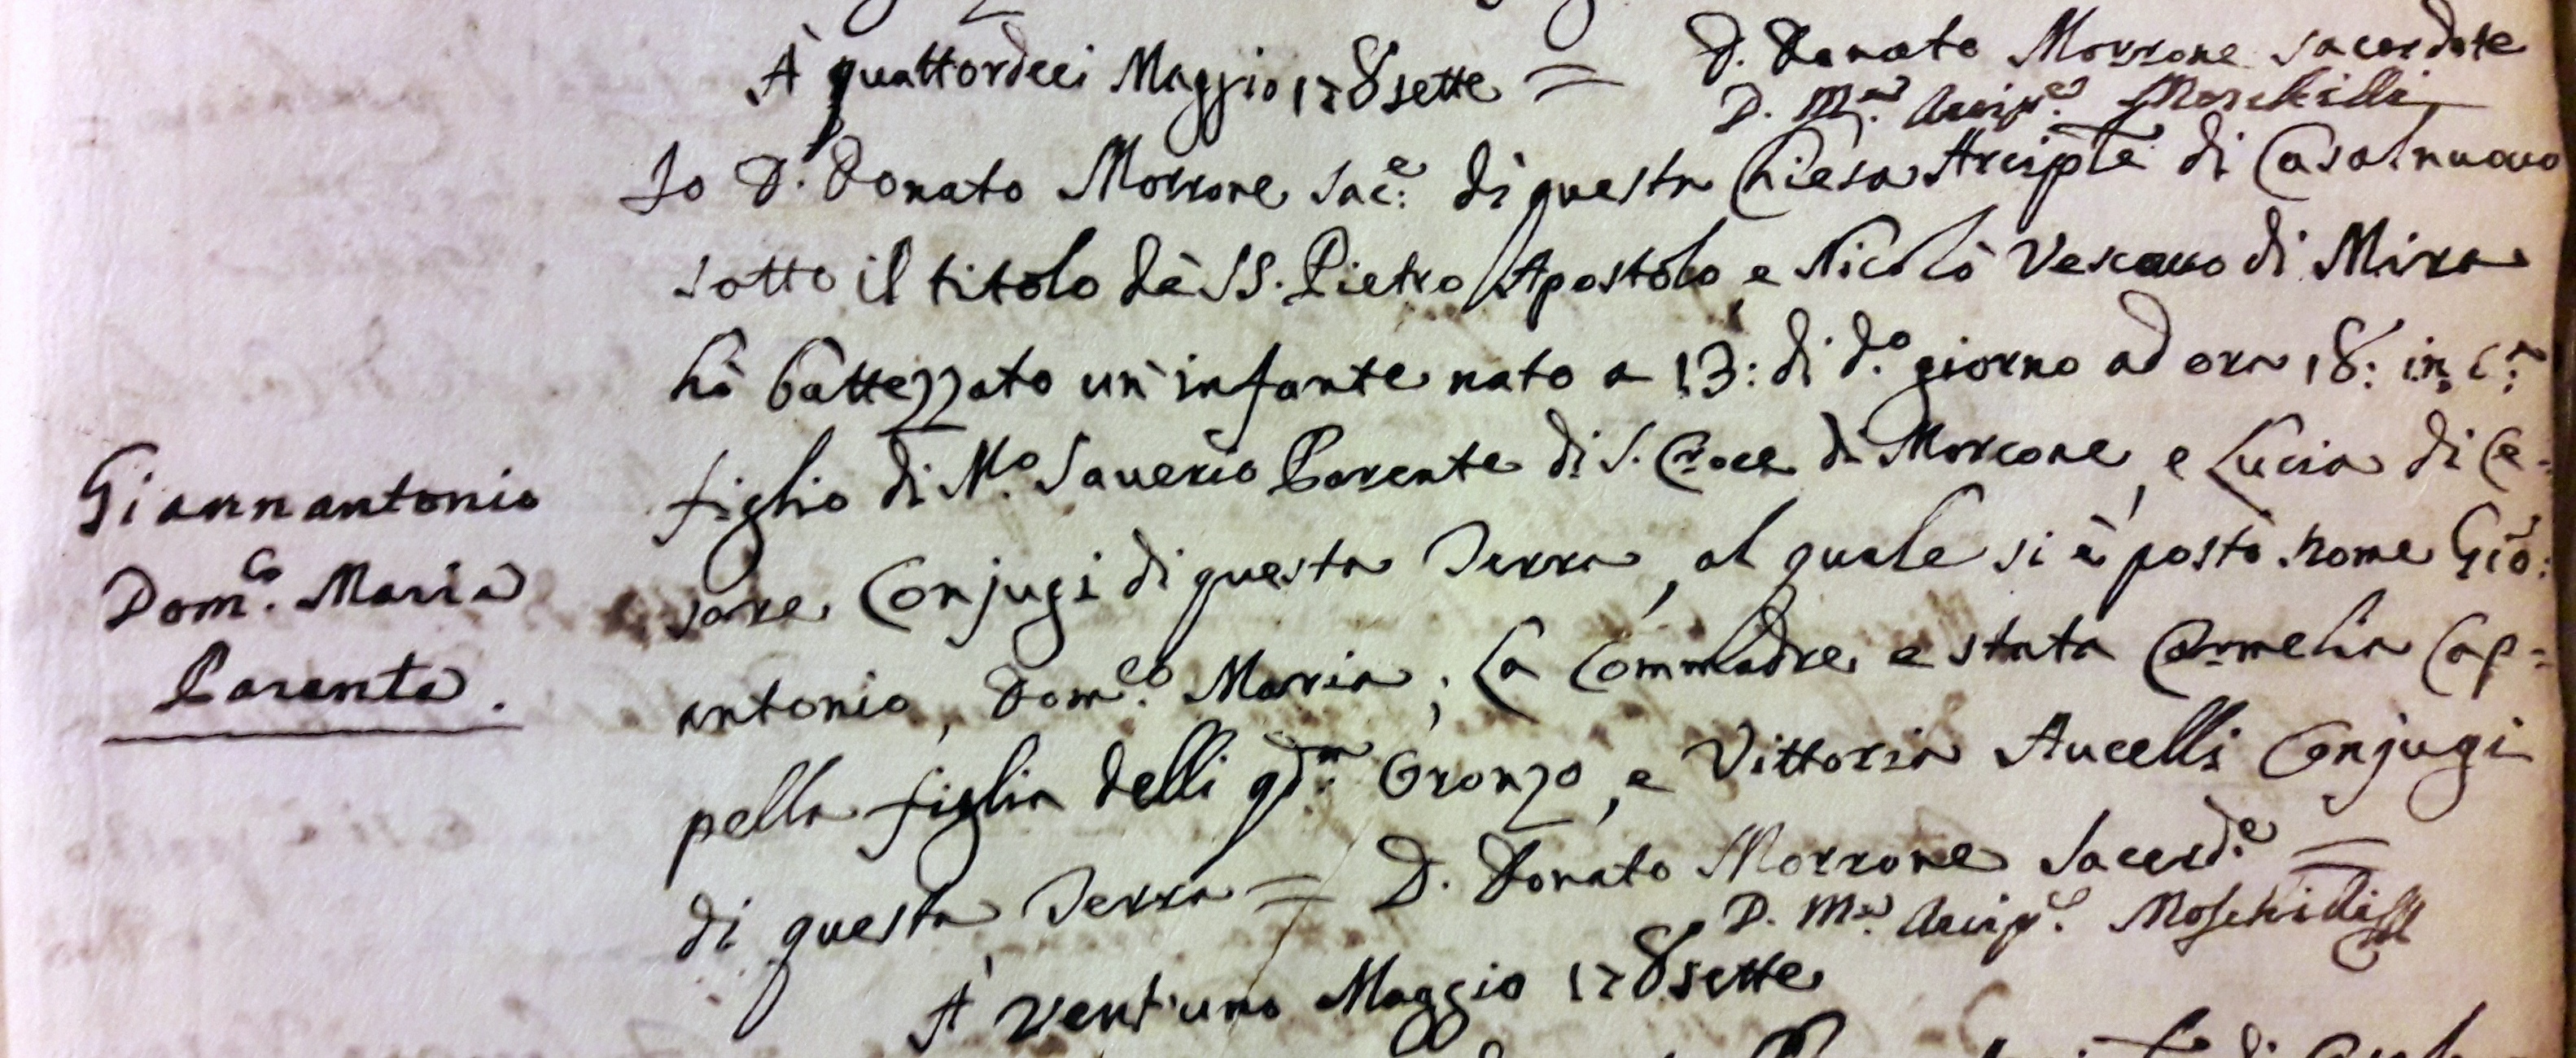 D. Donato Morrone Sacerdote
À quattordeci Maggio 178sette =
D. M.a Arcip.e Moschilli
Io D. Donato Morrone Sac.e di questa Chiesa Arcip̄le di Casalnuovo
sotto il titolo dè SS. Pietro Apostolo, e Nicolò Vescovo di Mira
hò battezzato un'infante nato a 13: di d.o giorno ad ora 18: in c.a
figlio di M.o Saverio Parente di S. Croce di Morcone, e Lucia di Ce=
sare Conjugi di questa Terra, al quale si è posto nome Gio:
antonio, Dom.co Maria; La Commadre è stata Carmelia Cap=
pella figlia delli qd.m Oronzo, e Vittoria Aucelli Conjugi
di questa Terra = D. Donato Morrone Sacerd.e =
D. M.a Arcip.e Moschilli
Giannantonio
Dom.co Maria
Parente.
A vent'uno Maggio 178sette